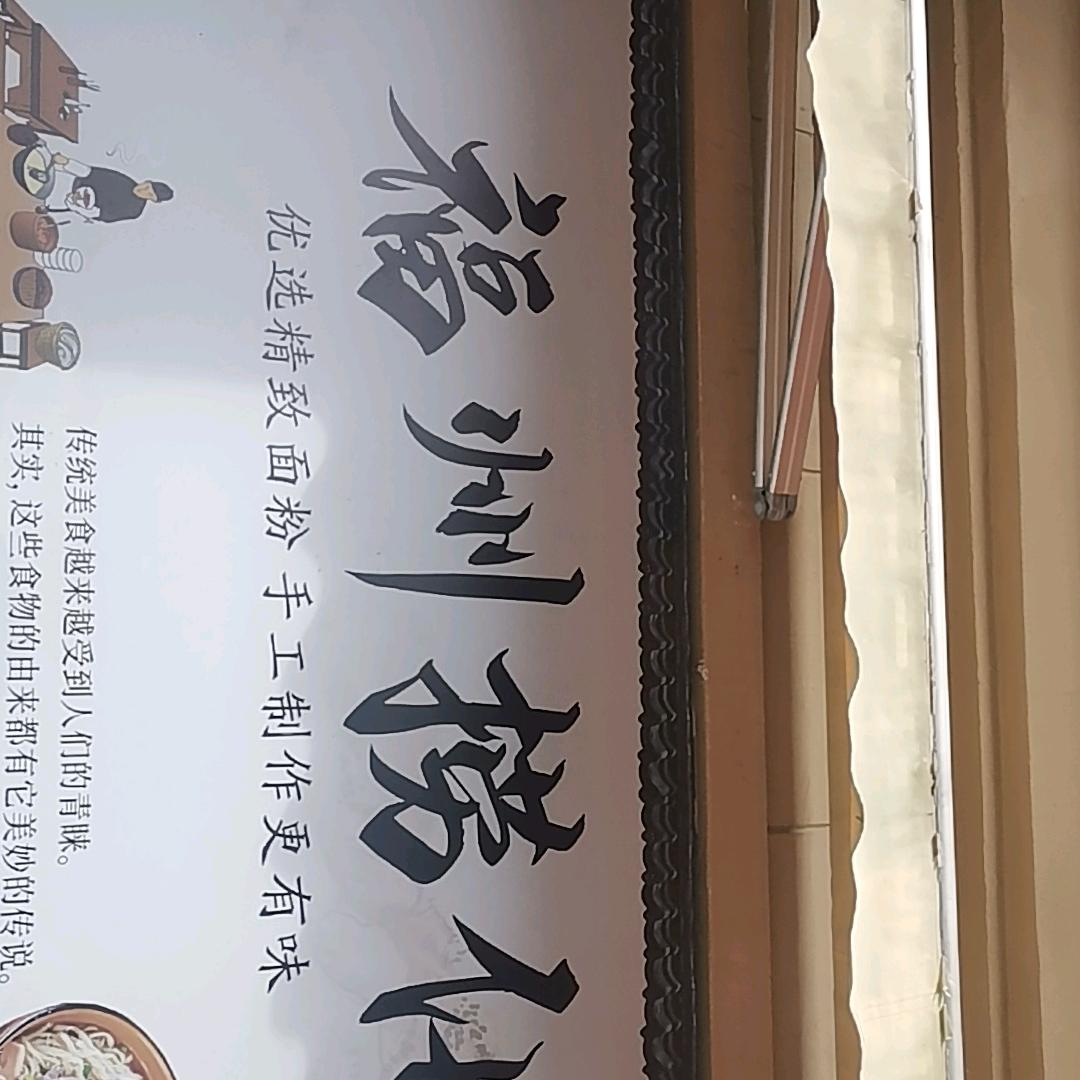 福州捞化
优选精致面粉 手工制作更有味
传统美食越来越受到人们的青睐。
其实，这些食物的由来都有它美妙的传说。